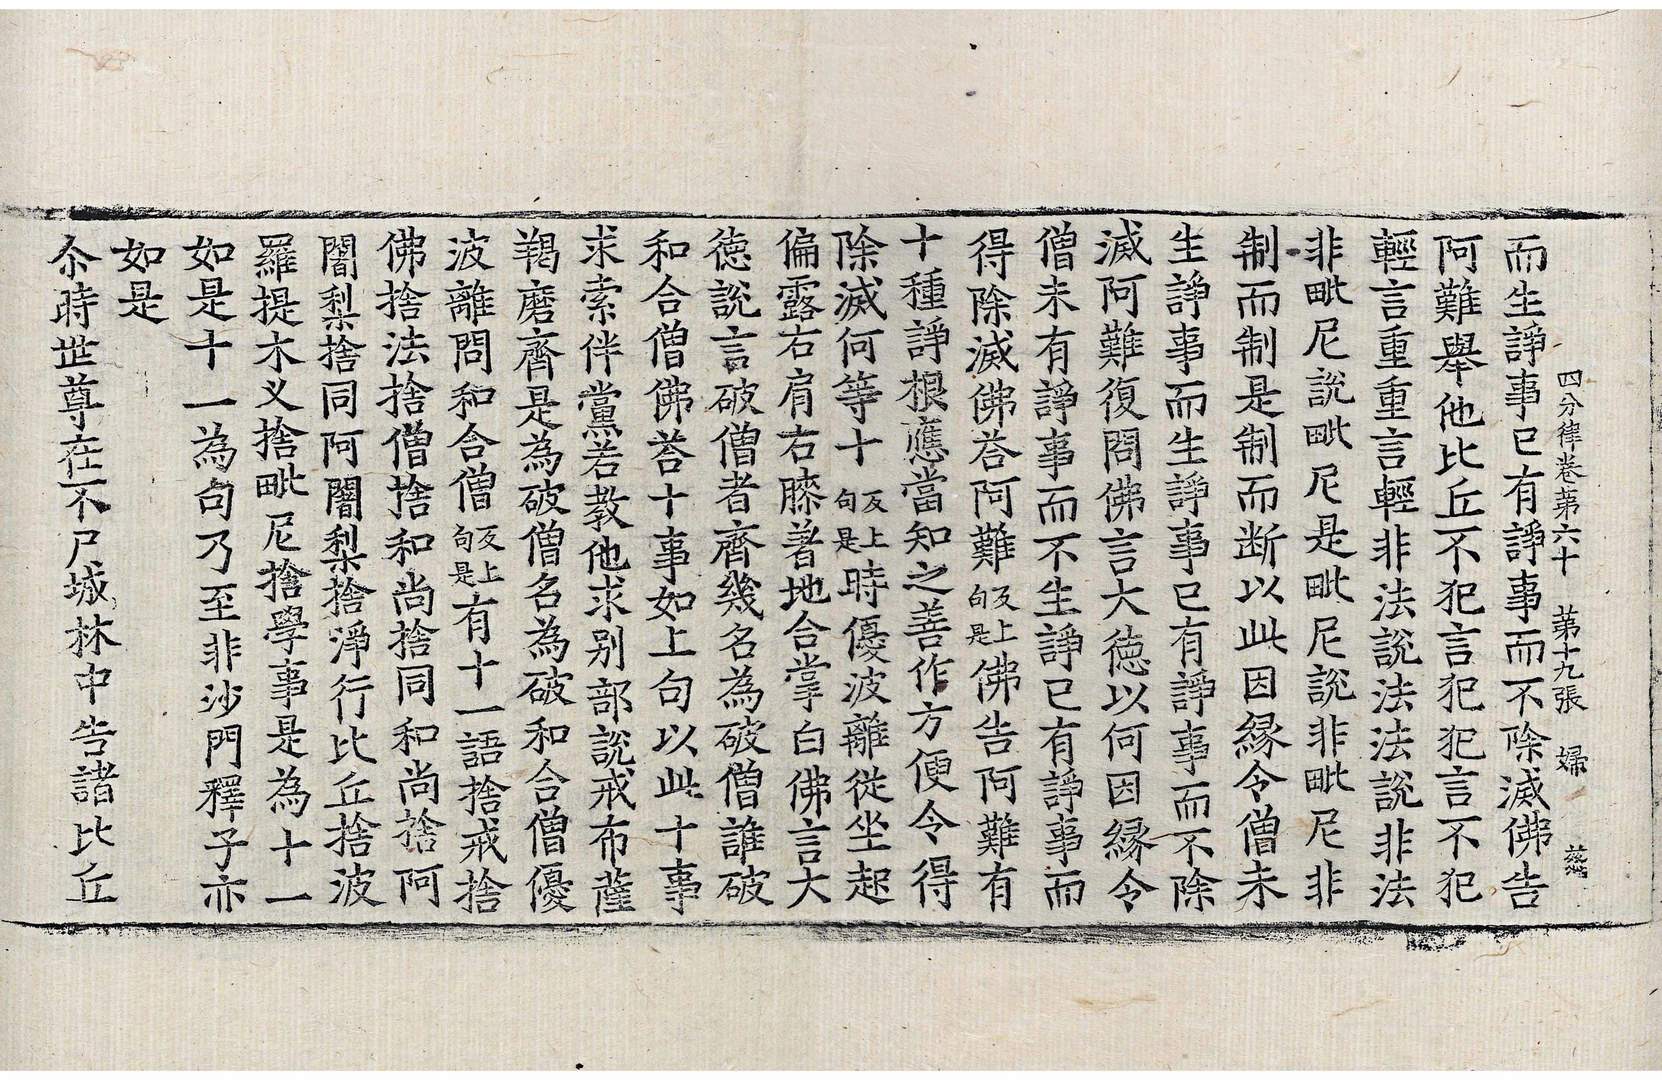 四分律卷第六十 第十九張 婦 慈
而生諍事已有諍事而不除滅佛告
阿難舉他比丘不犯言犯犯言不犯
輕言重重言輕非法說法法說非法
非毗尼說毗尼是毗尼說非毗尼非
制而制是制而断以此因緣令僧未
生諍事而生諍事已有諍事而不除
滅阿難復問佛言大德以何因緣令
僧未有諍事而不生諍已有諍事而
得除滅佛荅阿難反上句是佛告阿難有
十種諍根應當知之善作方便令得
除滅何等十反上句是時優波離從坐起
偏露右肩右膝著地合掌白佛言大
德說言破僧者齊幾名為破僧誰破
和合僧佛荅十事如上句以此十事
求索伴黨若教他求別部說戒布薩
羯磨齊是為破僧名為破和合僧優
波離問和合僧反上句是有十一語捨戒捨
佛捨法捨僧捨和尚捨同和尚捨阿
闍梨捨同阿闍梨捨淨行比丘捨波
羅提木义捨毗尼捨學事是為十一
如是十一為句乃至非沙門釋子亦
如是
尒時世尊在不尸城林中告諸比丘